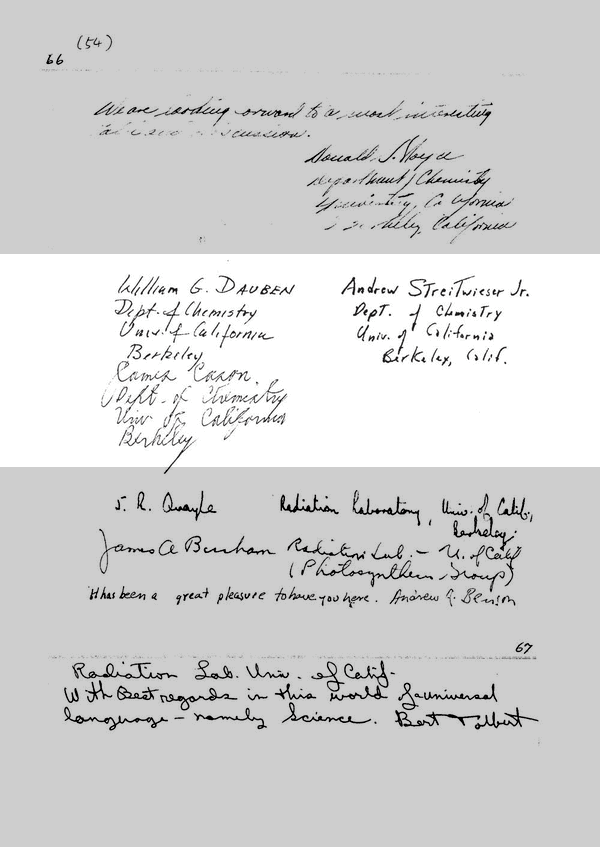 (54)
66
We are looking forward to a most interesting
discussion.
Donald S. Noyce
Department of Chemistry
University, California
Berkeley, California
William G. DAUBEN
Dept. of Chemistry
Univ. of California
Berkeley
Andrew Streitwieser Jr.
Dept. of Chemistry
Univ. of California
Berkeley, Calif.
James Cason.
Dept. of Chemistry
Univ of California
Berkeley
J. R. Quayle Radiation Laboratory, Univ. of Calif.,
Berkeley.
James A Bassham Radiation Lab. - U. of Calif
(Photosynthesis Group)
It has been a great pleasure to have you here. Andrew A. Benson
67
Radiation Lab. Univ. of Calif.
With Best regards in this world of a universal
language - namely Science. Bert Tolbert